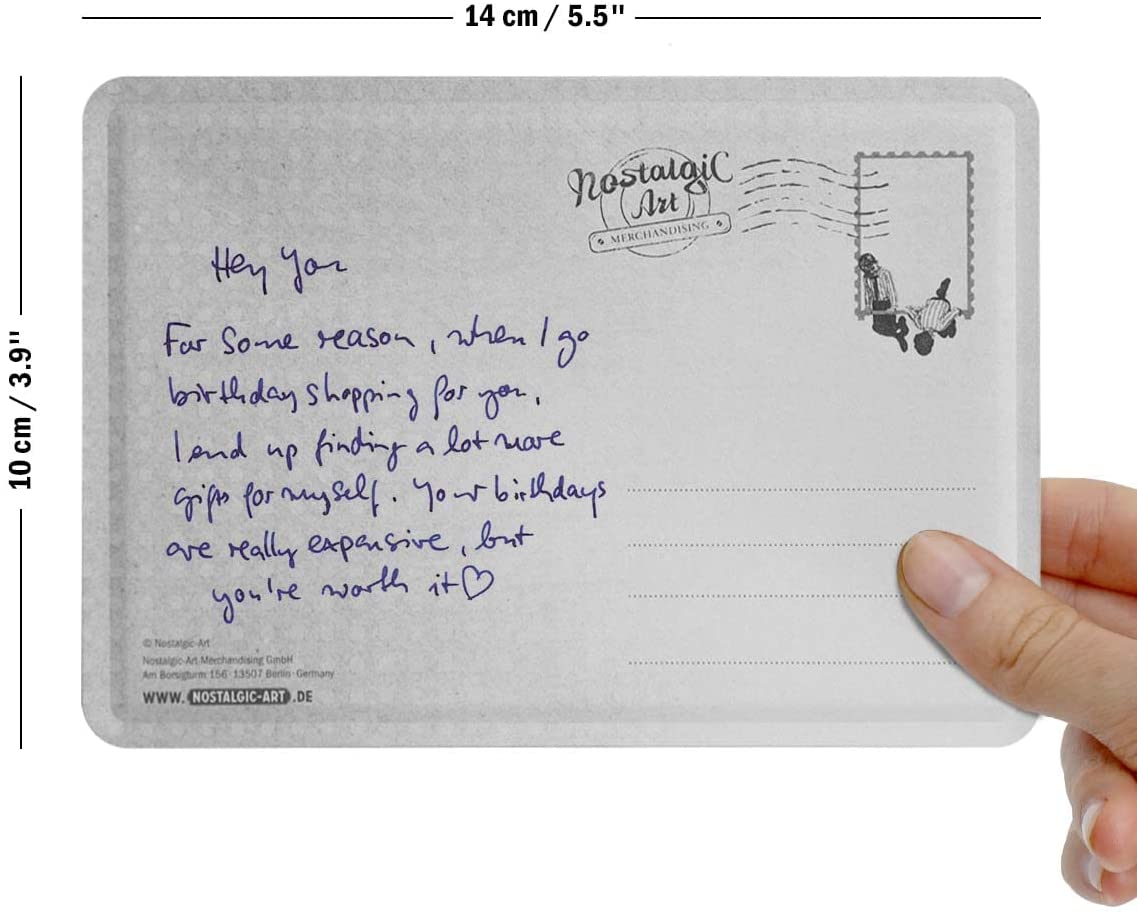 14 cm / 5.5"
10 cm / 3.9"
Nostalgic
Art
MERCHANDISING
Hey You
For some reason, when I go
birthday shopping for you,
I end up finding a lot more
gifts for myself. Your birthdays
are really expensive, but
you're worth it♡
© Nostalgic-Art
Nostalgic-Art Merchandising GmbH
Am Borsigturm 156 · 13507 Berlin · Germany
WWW. NOSTALGIC-ART .DE